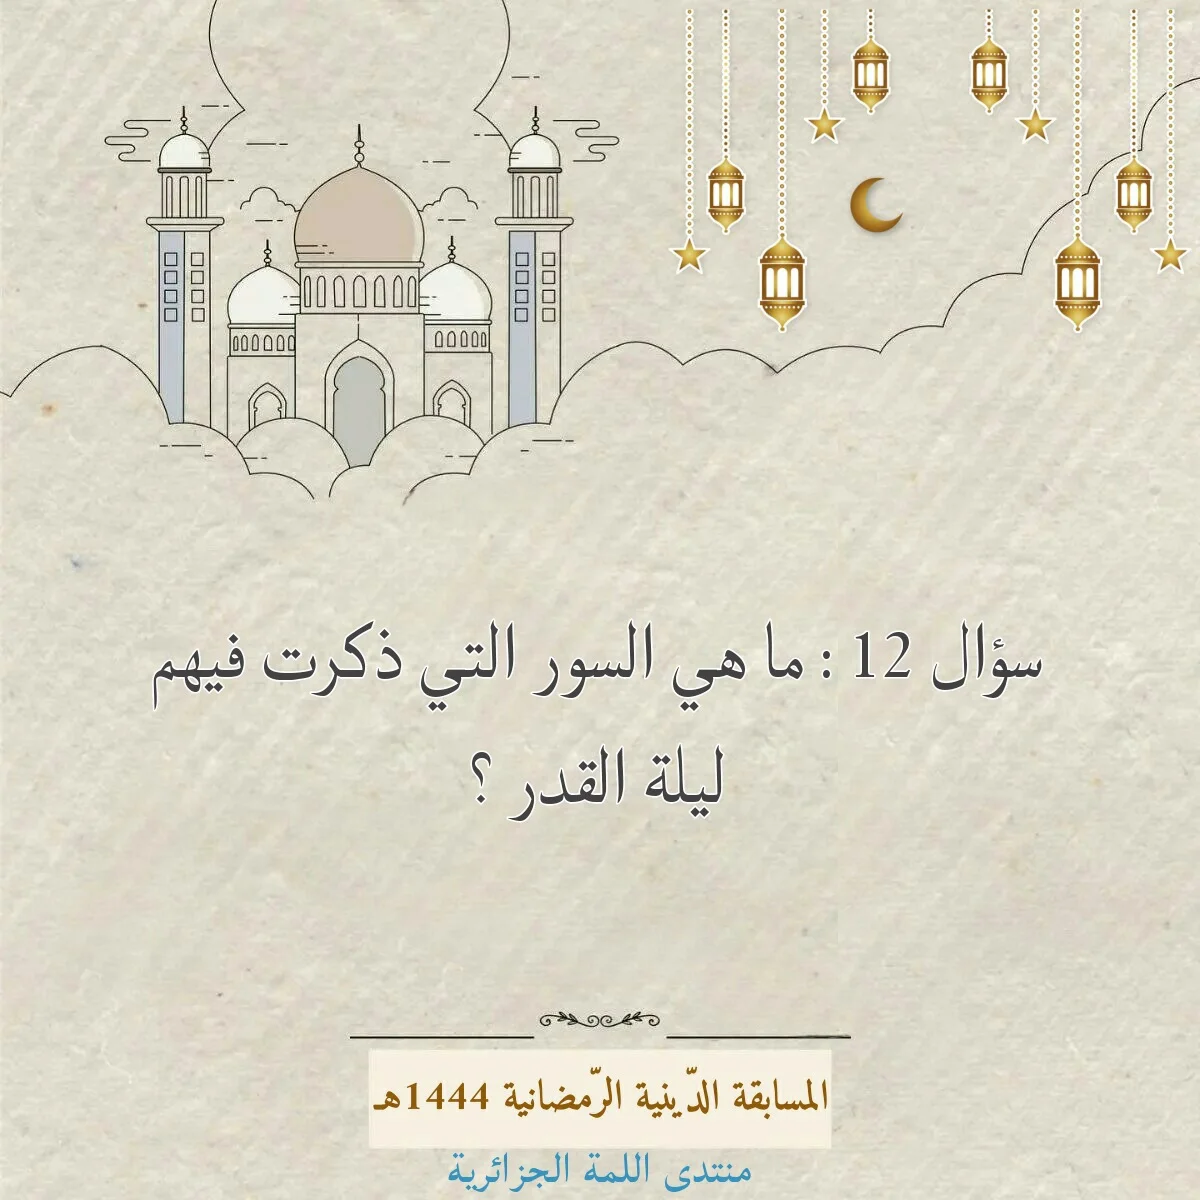 سؤال 12 : ما هي السور التي ذكرت فيهم
ليلة القدر ؟
المسابقة الدّينية الرّمضانية 1444هـ
منتدى اللمة الجزائرية